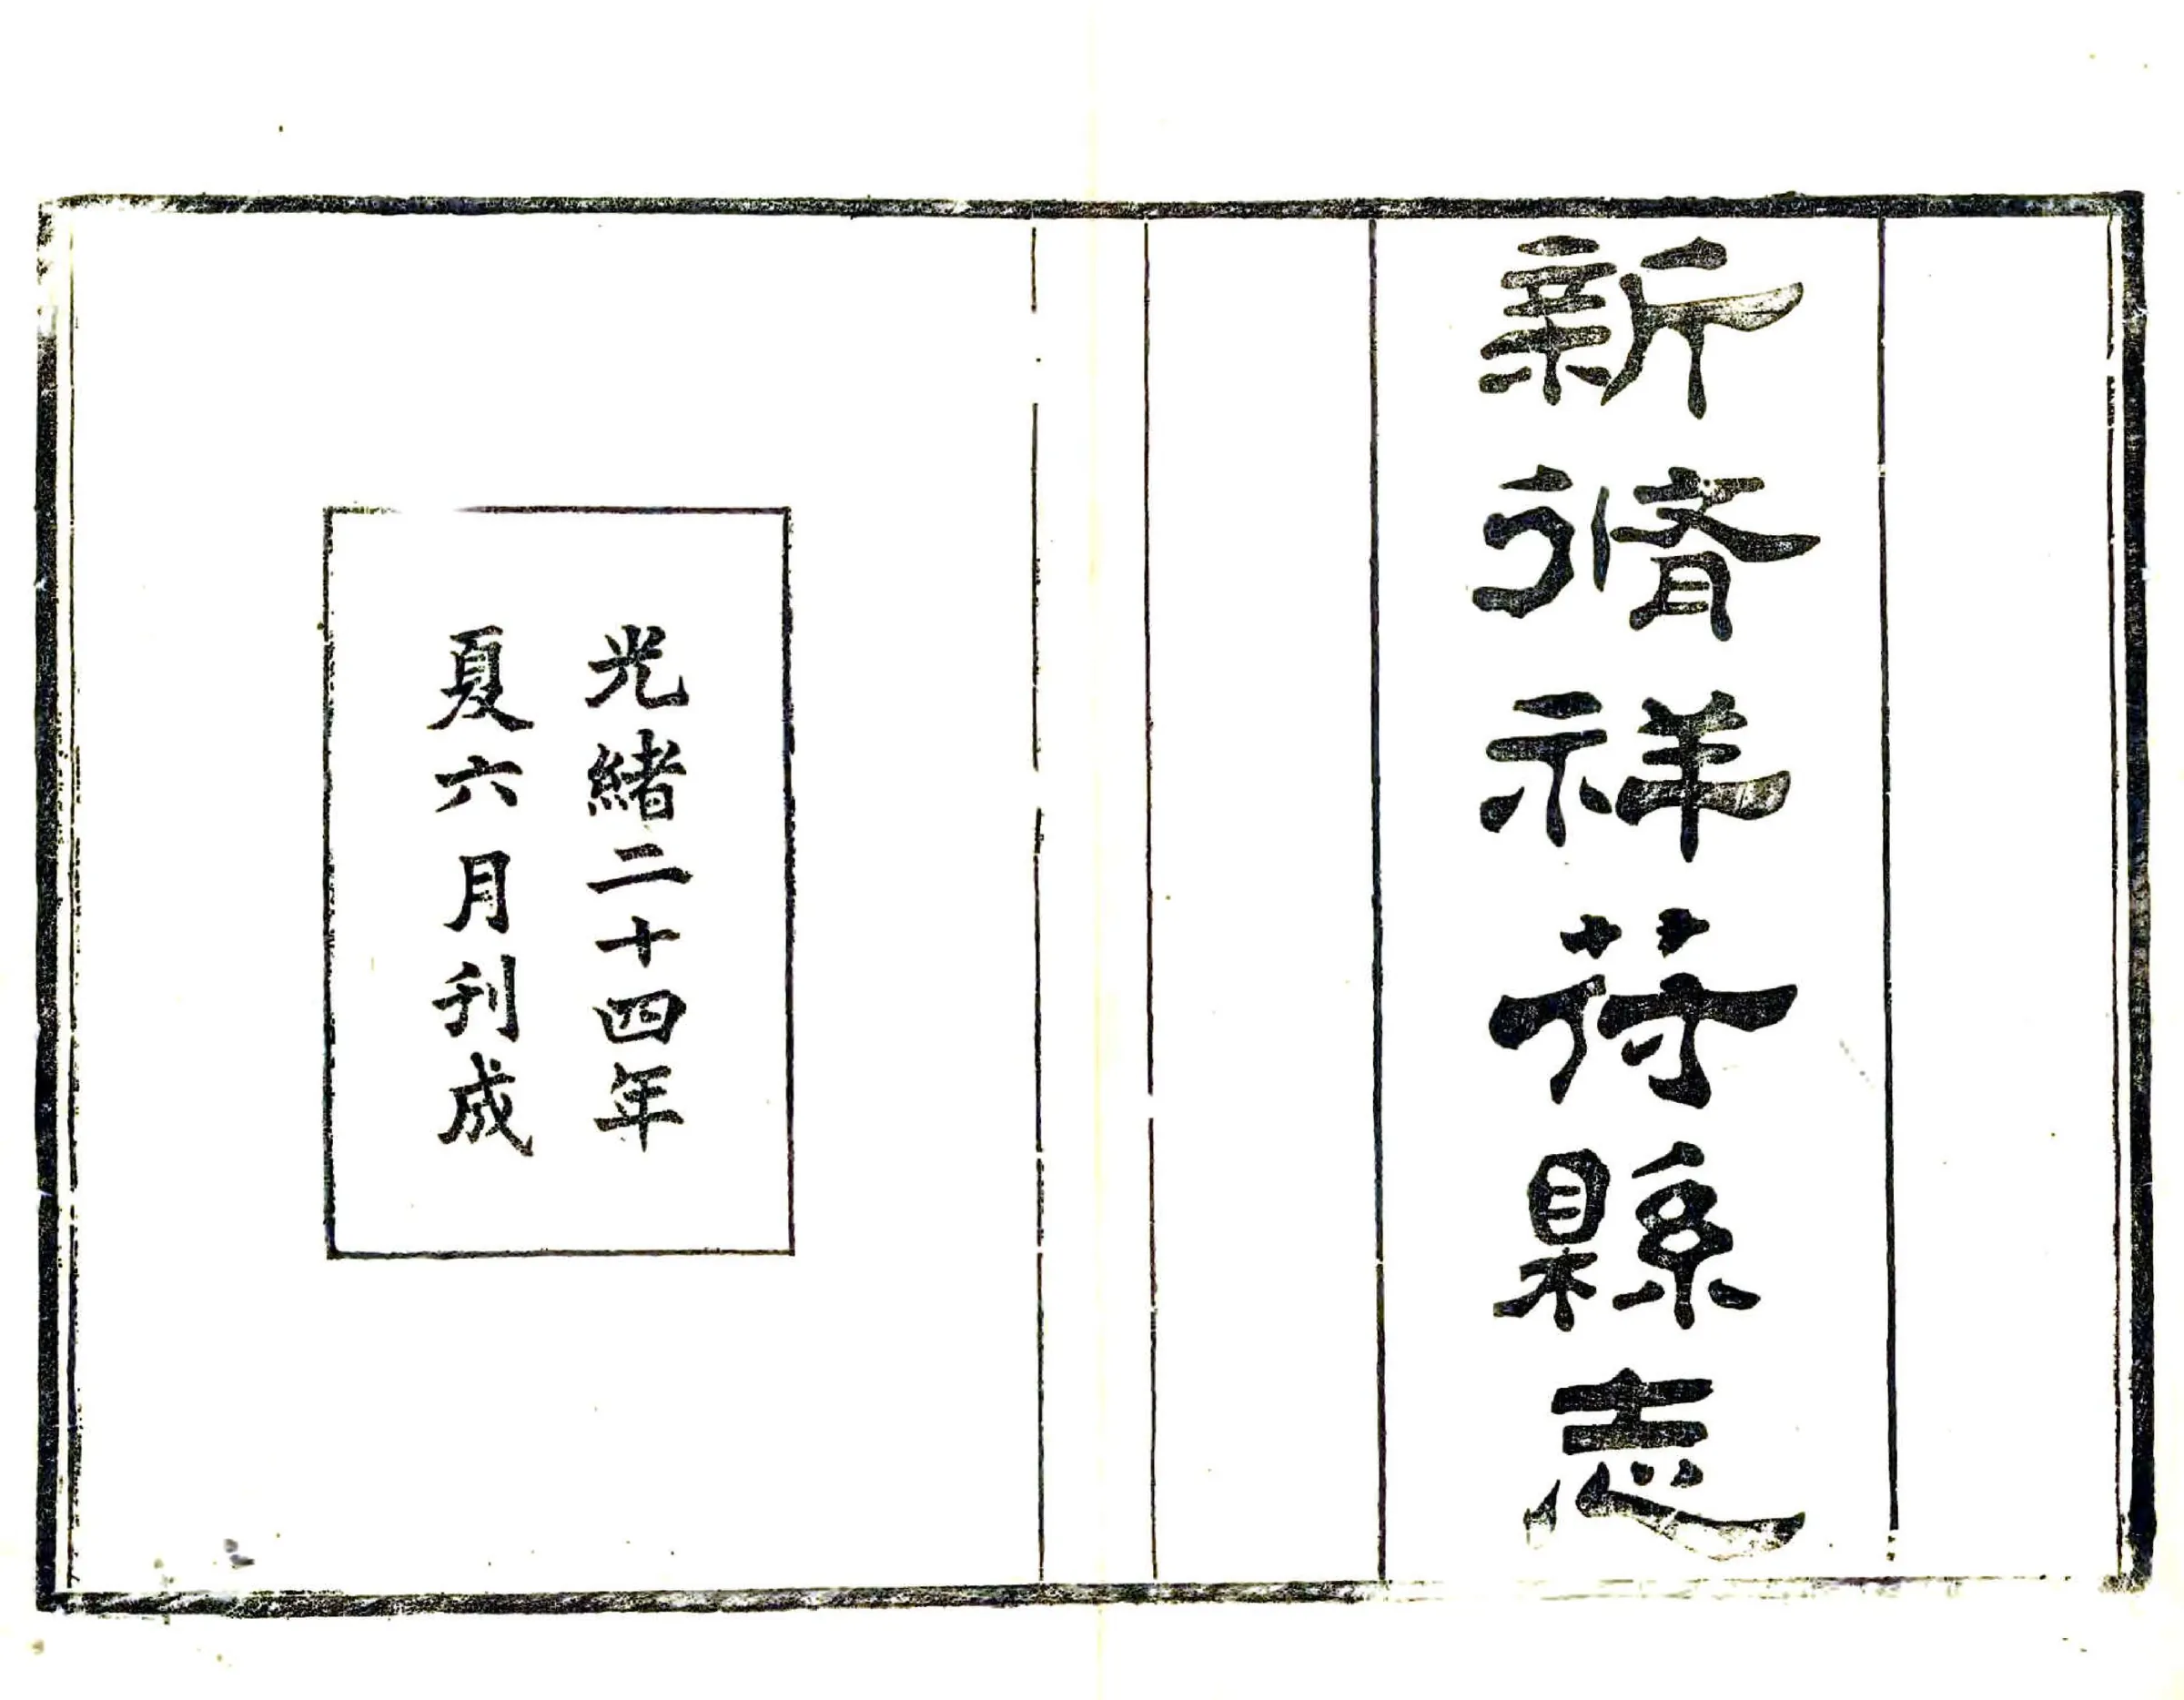 新脩祥符縣志
光緒二十四年
夏六月刊成